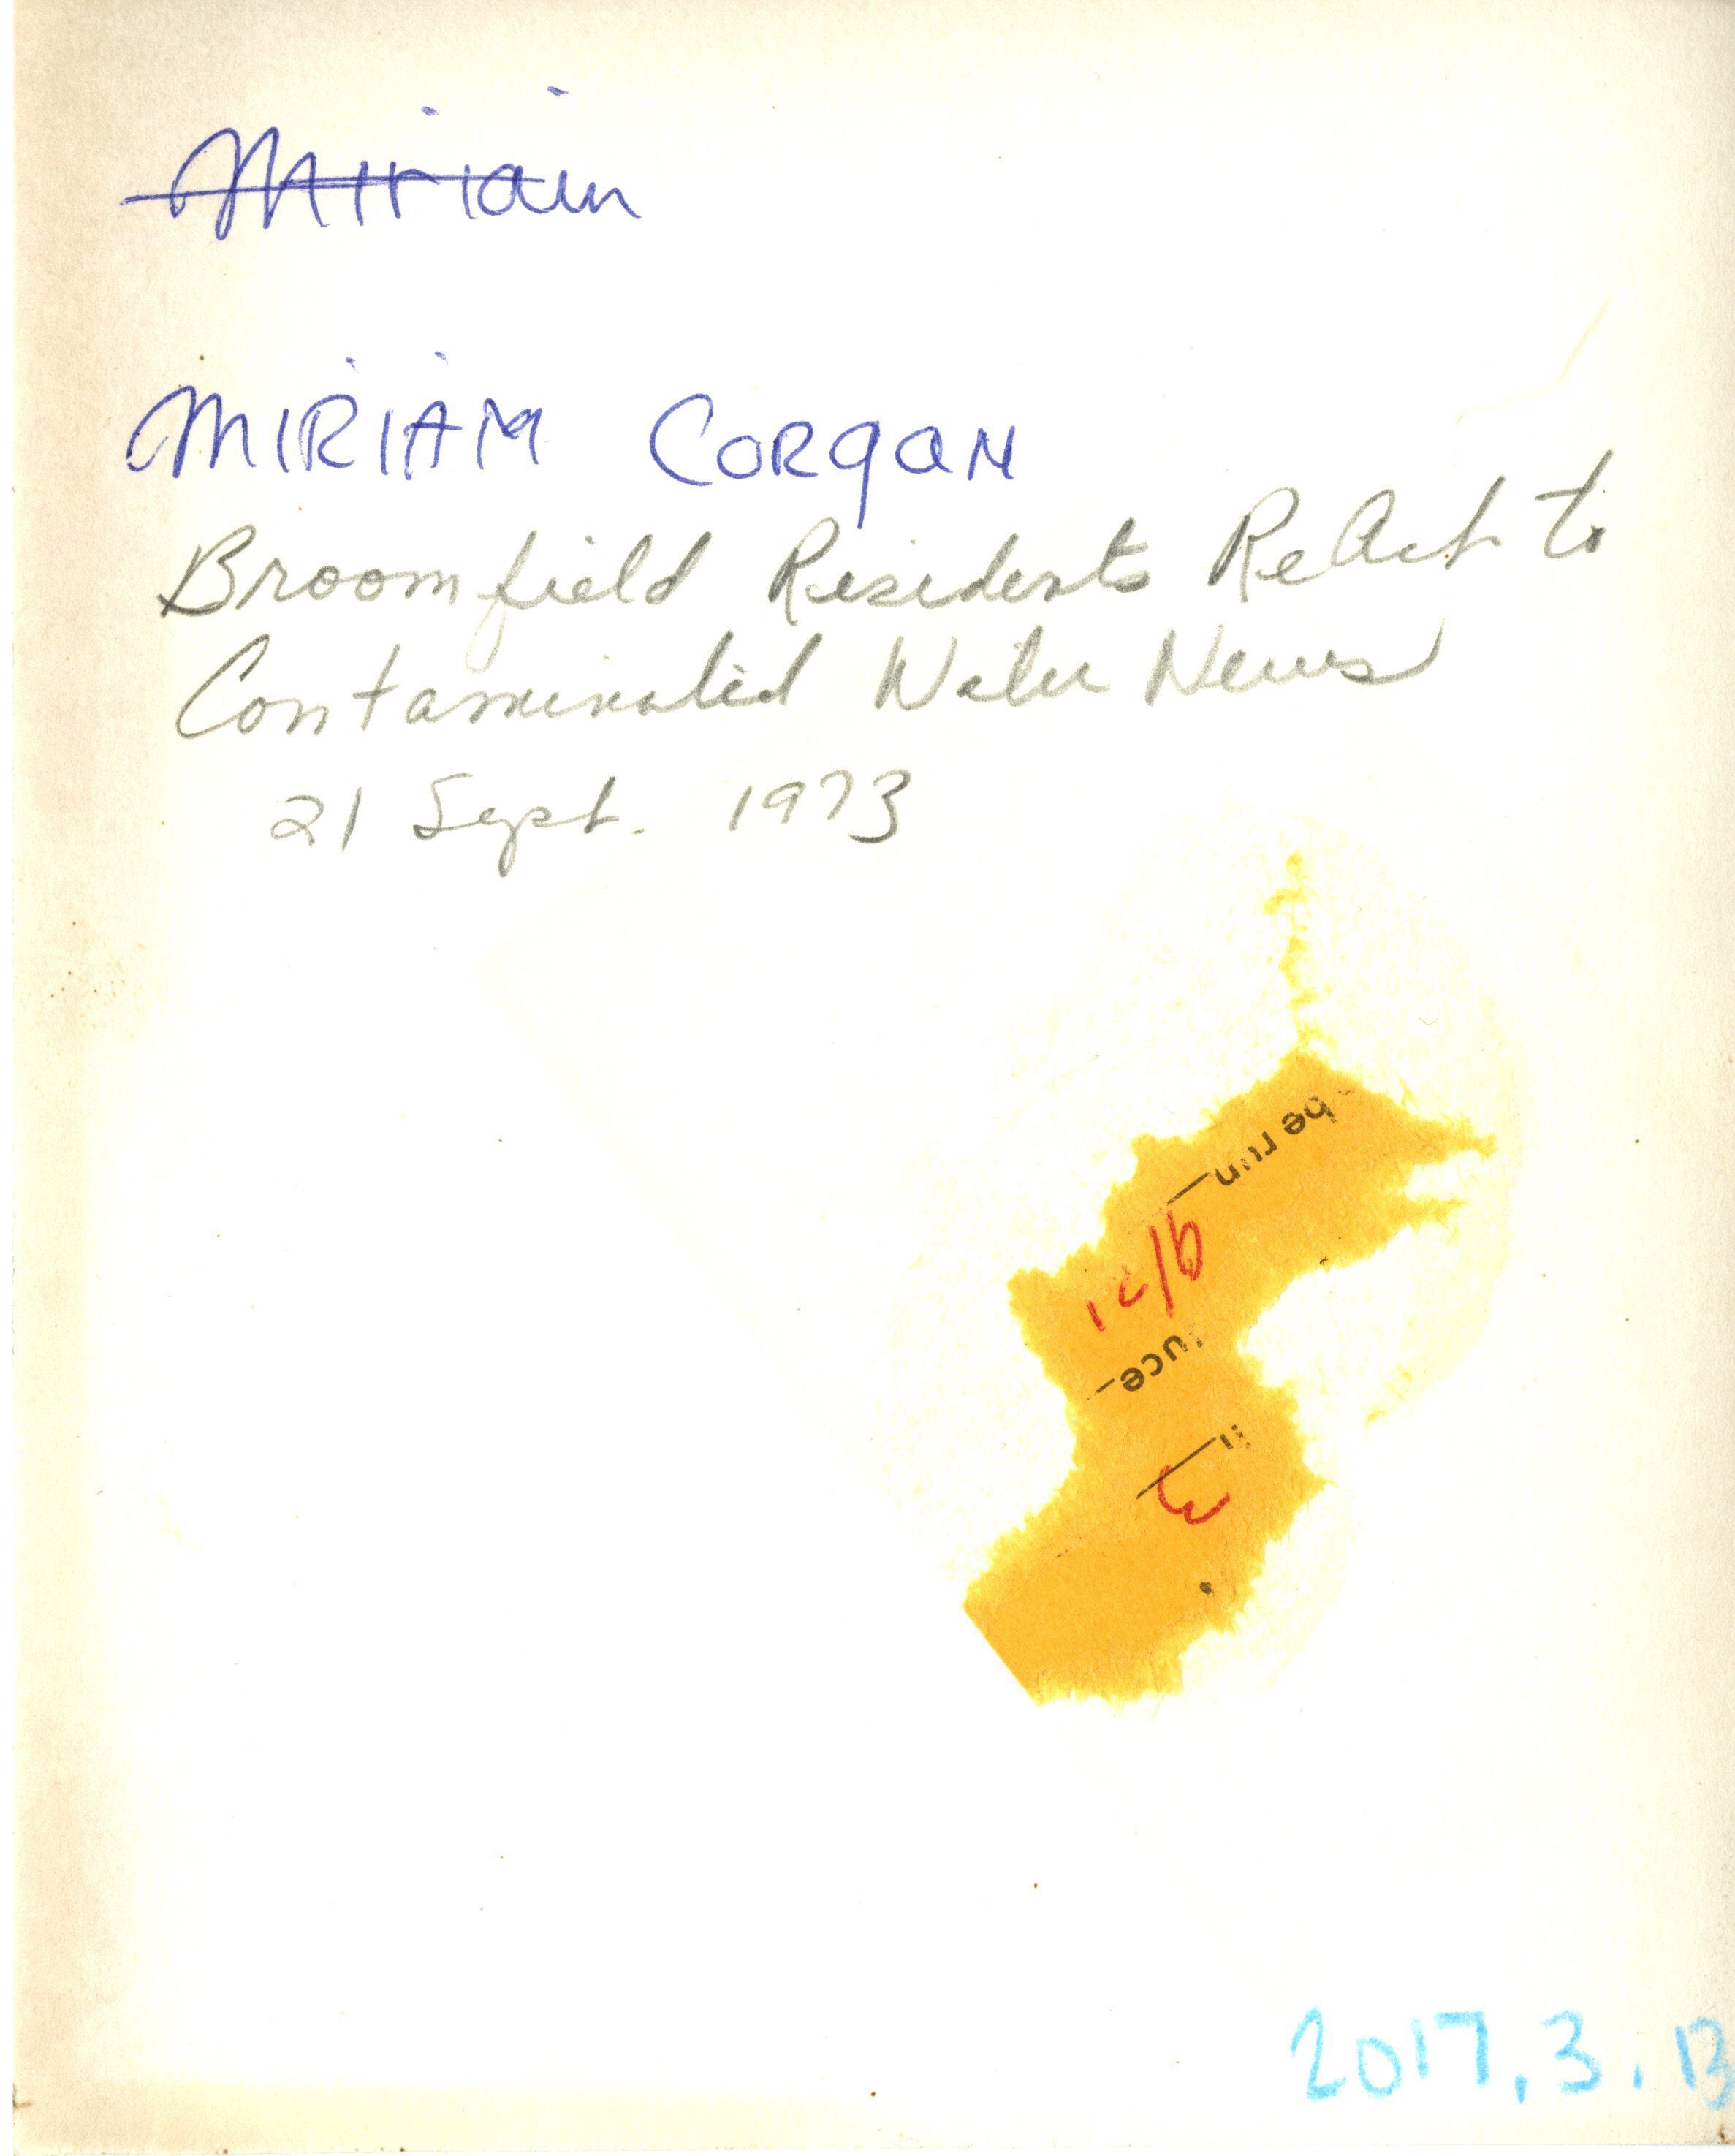 Miriam
MIRIAM CORgaN
Broomfield Residents ReAct to
Contaminated Water News
21 Sept. 1973
be run
9/21
uce
3
2017.3.13